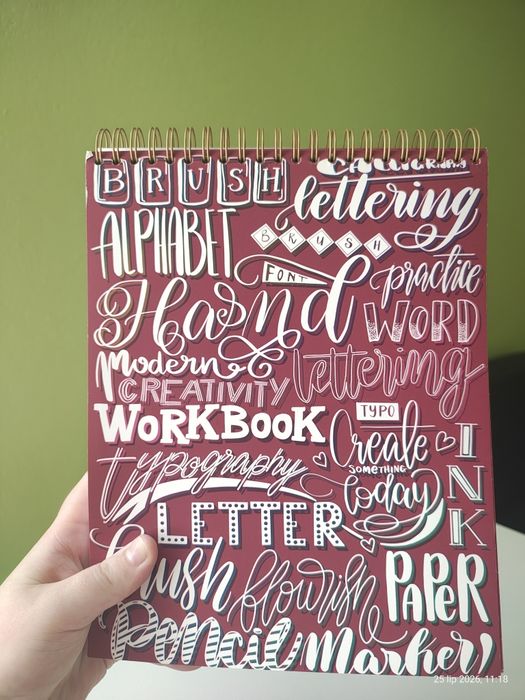 BRUSH
CALLIGRAPHY
lettering
ALPHABET
BRUSH
FONT
practice
Hand
WORD
modern
CREATIVITY
lettering
WORKBOOK
TYPO
Create
SOMETHING
today
INK
typography
LETTER
brush
flourish
PAPER
Pencil
Marker
25 lip 2026, 11:18